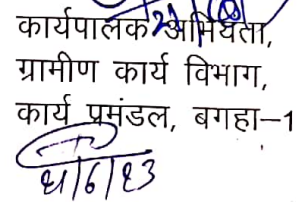 कार्यपालक अभियंता,
ग्रामीण कार्य विभाग,
कार्य प्रमंडल, बगहा–1